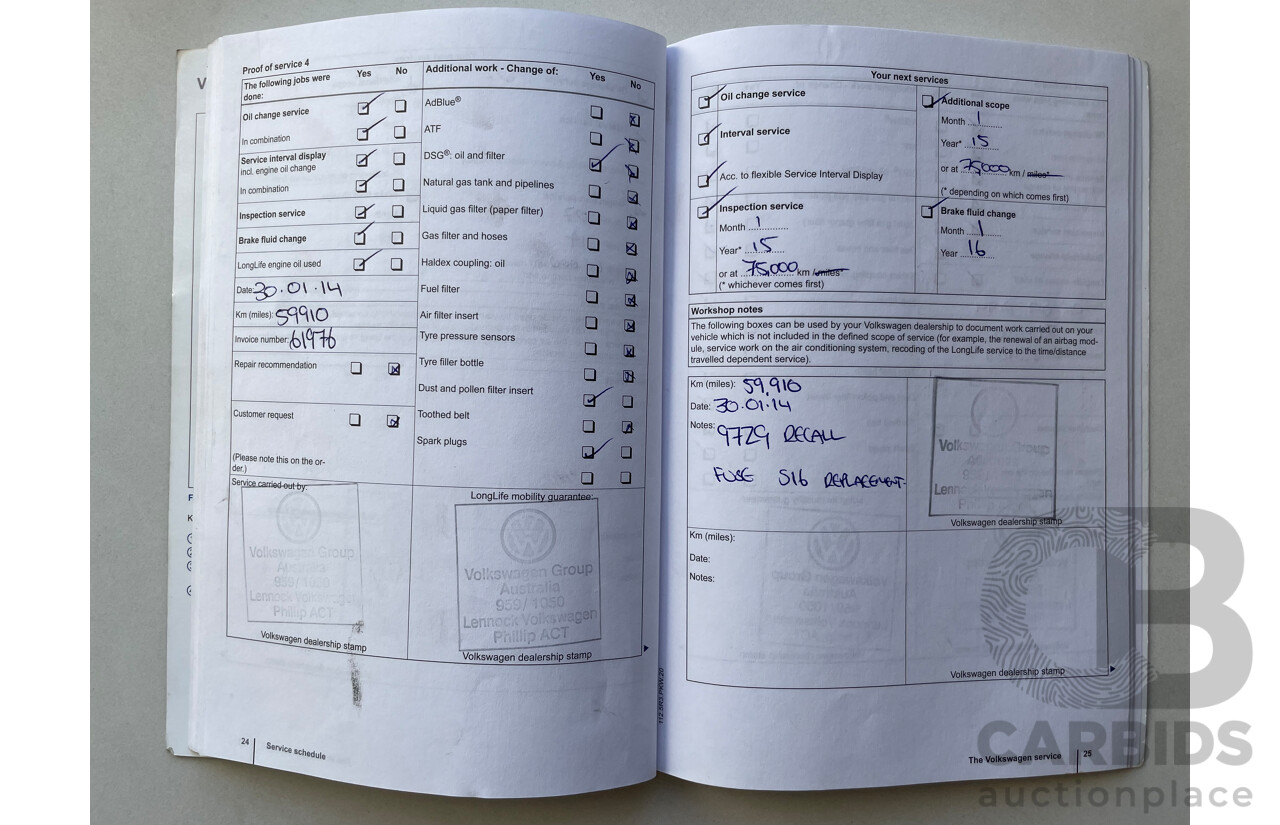 V
F
K
Proof of service 4
The following jobs were done:
Yes No
Oil change service
In combination
Service interval display
incl. engine oil change
In combination
Inspection service
Brake fluid change
LongLife engine oil used
Date: 30.01.14
Km (miles): 59910
Invoice number: 61976
Repair recommendation
Customer request
(Please note this on the or-
der.)
Service carried out by:
Volkswagen Group
Australia
959/1050
Lennock Volkswagen
Phillip ACT
Volkswagen dealership stamp
Additional work - Change of:
Yes
No
AdBlue®
ATF
DSG®: oil and filter
Natural gas tank and pipelines
Liquid gas filter (paper filter)
Gas filter and hoses
Haldex coupling: oil
Fuel filter
Air filter insert
Tyre pressure sensors
Tyre filler bottle
Dust and pollen filter insert
Toothed belt
Spark plugs
LongLife mobility guarantee:
Volkswagen Group
Australia
959/1050
Lennock Volkswagen
Phillip ACT
Volkswagen dealership stamp
24 Service schedule
Your next services
Oil change service
Interval service
Acc. to flexible Service Interval Display
Inspection service
Month 1
Year* 15
or at 75,000 km / miles*
(* whichever comes first)
Additional scope
Month 1
Year* 15
or at 75000 km / miles*
(* depending on which comes first)
Brake fluid change
Month 1
Year 16
Workshop notes
The following boxes can be used by your Volkswagen dealership to document work carried out on your
vehicle which is not included in the defined scope of service (for example, the renewal of an airbag mod-
ule, service work on the air conditioning system, recoding of the LongLife service to the time/distance
travelled dependent service).
Km (miles): 59,910
Date: 30.01.14
Notes: 97Z9 RECALL
FUSE S16 REPLACEMENT.
Volkswagen Group
Volkswagen dealership stamp
Km (miles):
Date:
Notes:
Volkswagen dealership stamp
The Volkswagen service 25
CB
CARBIDS
auctionplace